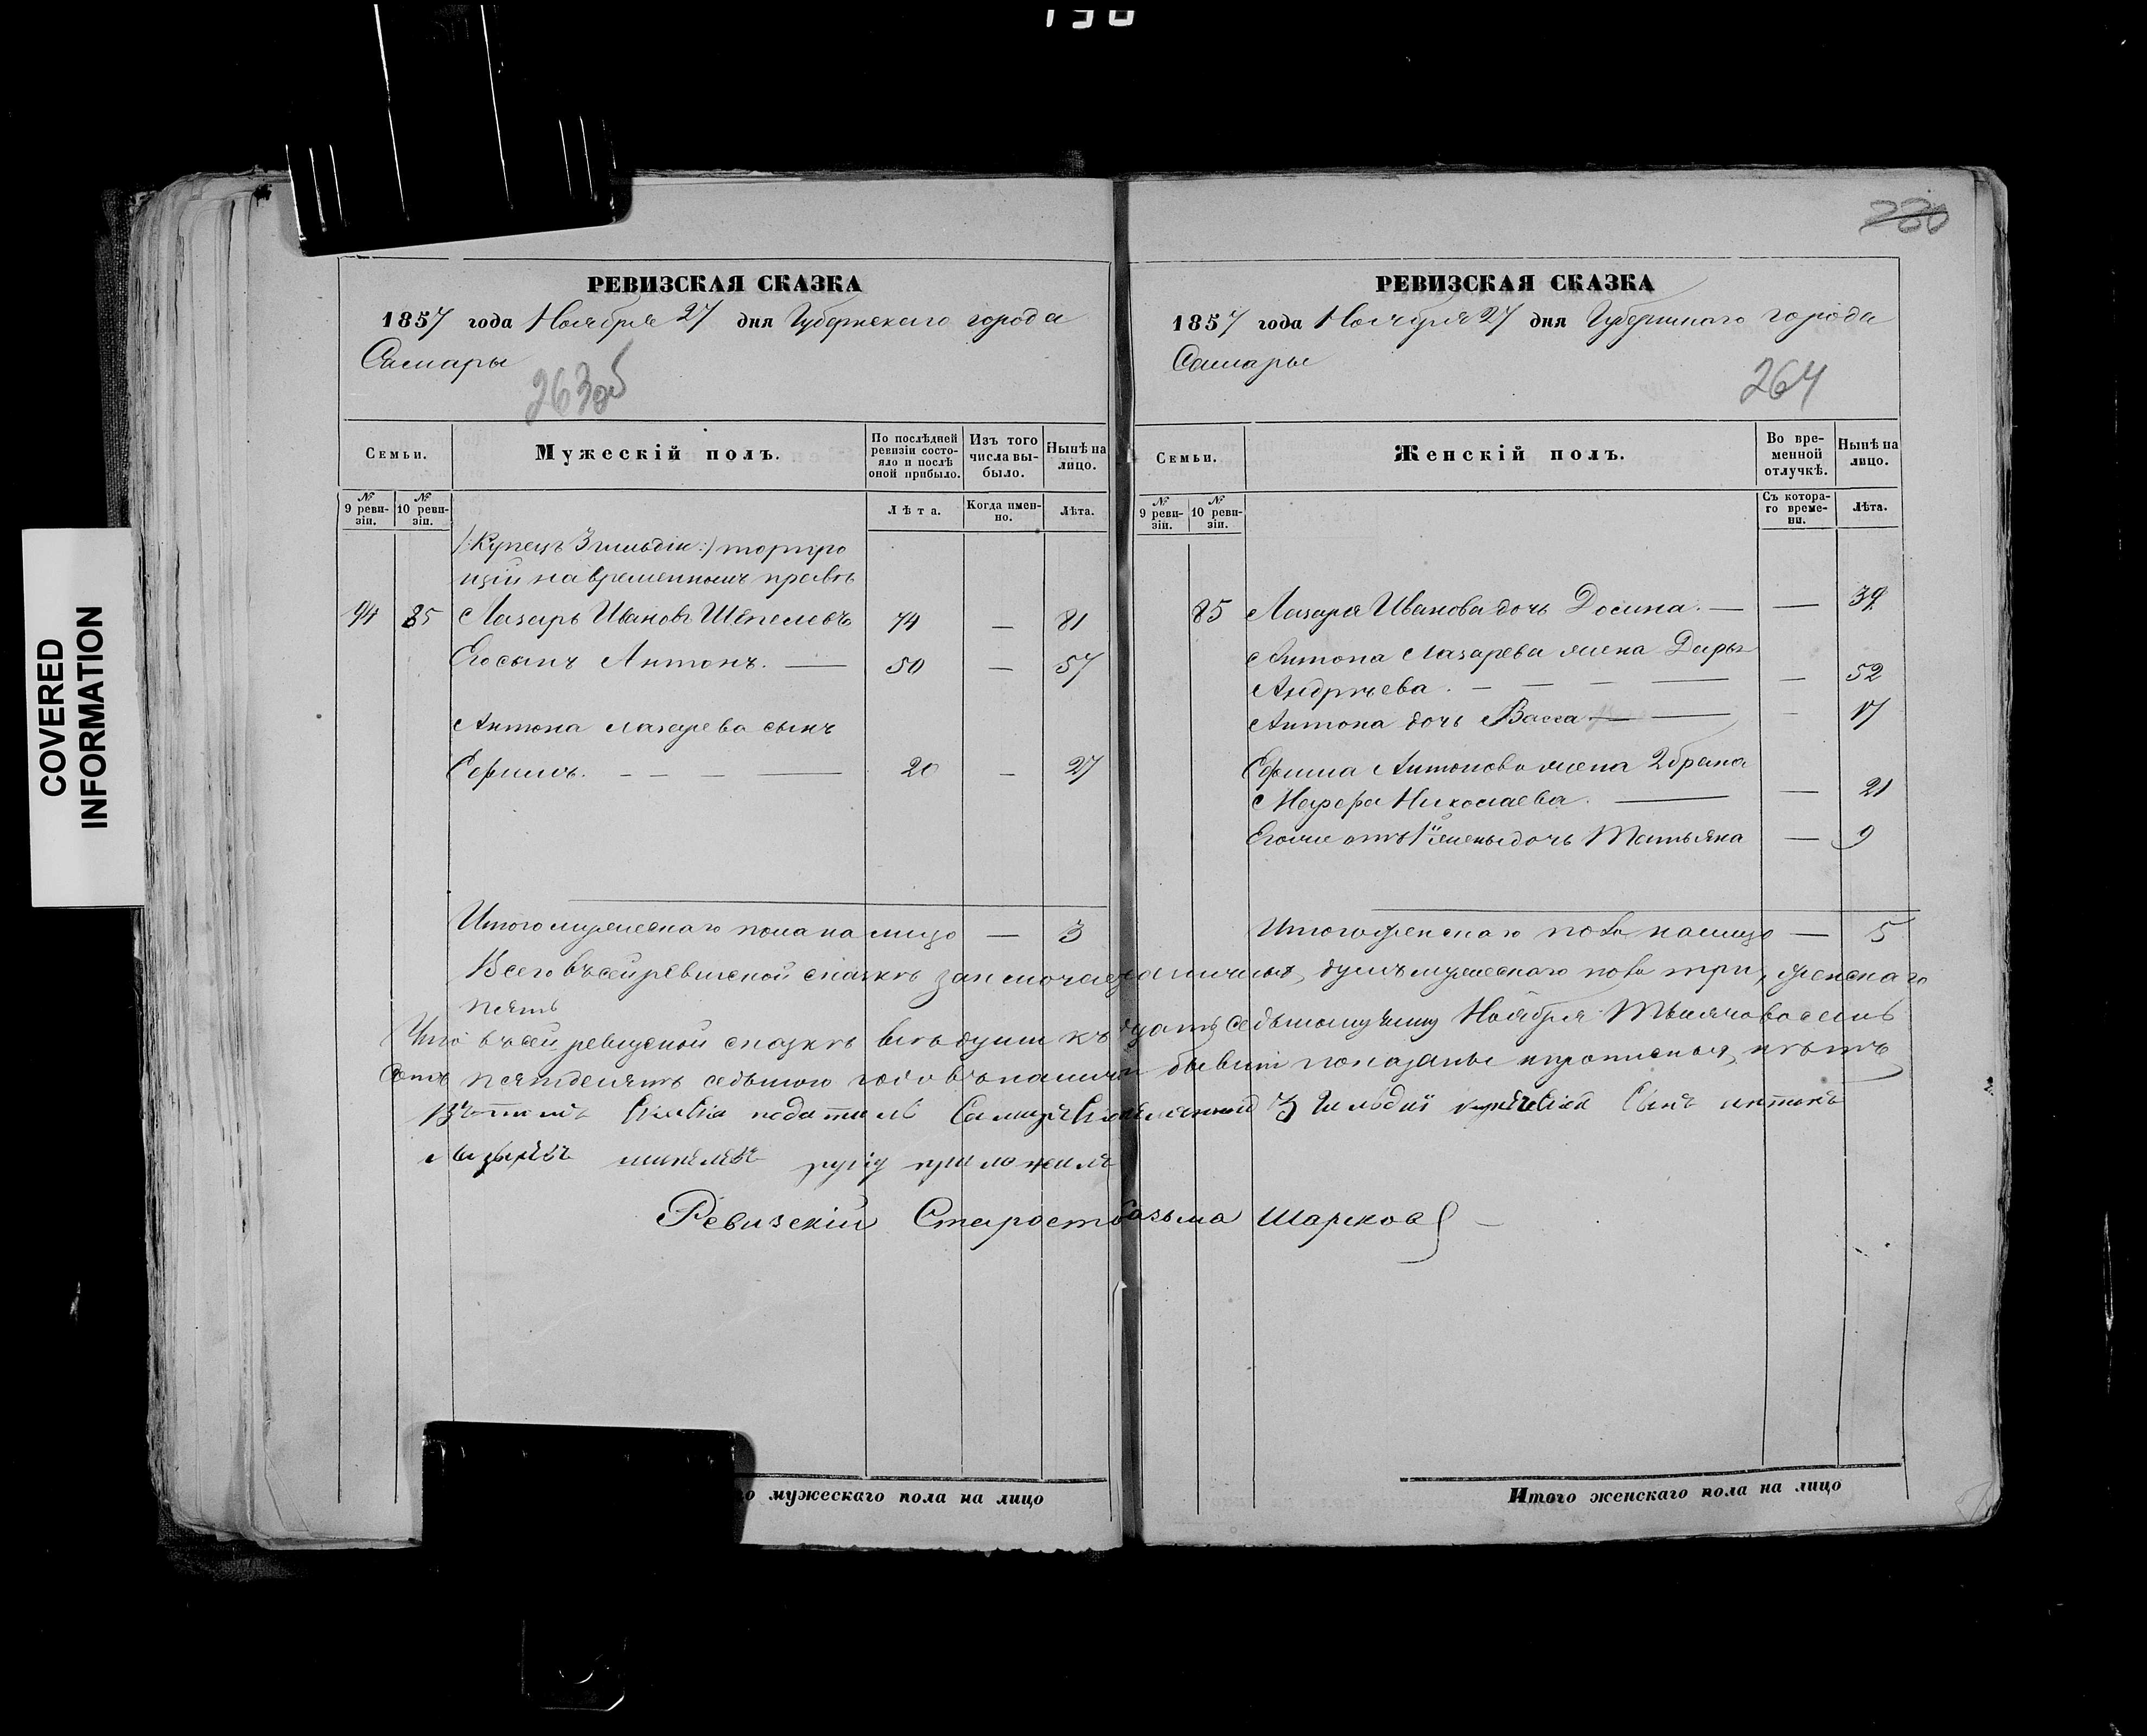 COVERED
INFORMATION
РЕВИЗСКАЯ СКАЗКА
1857 года Ноября 27 дня Губернскаго города
Самары
263 об
Семьи.
Мужескій полъ.
По послѣдней ревизіи состояло и послѣ оной прибыло.
Изъ того числа выбыло.
Нынѣ на лицо.
№ 9 ревизіи.
№ 10 ревизіи.
Лѣта.
Когда именно.
Лѣта.
/:Купецъ 3 гильдіи:/
на временномъ правѣ
94 85 Лазарь Ивановъ Шепелевъ 74 — 81
Его сынъ Антонъ. — 50 — 57
Антона Лазарева сынъ
Ефимъ. — — — — 20 — 27
Итого мужескаго пола на лицо — 3
о мужескаго пола на лицо
РЕВИЗСКАЯ СКАЗКА
1857 года Ноября 27 дня Губернскаго города
Самары
264
Семьи.
Женскій полъ.
Во временной отлучкѣ.
Нынѣ на лицо.
№ 9 ревизіи.
№ 10 ревизіи.
Съ котораго времени.
Лѣта.
85 Лазаря Иванова дочь Домна. — — 39
Антона Лазарева жена Дарья
Андреева. — — — — — 52
Антона дочь Васса — — — 17
Ефима Антонова жена 2 брака
Николаева. — — 21
Его же отъ 1й жены дочь Татьяна — 9
Итого женскаго пола на лицо — 5
Всего въ сей ревизской сказкѣ заключается наличныхъ душъ мужескаго пола три, женскаго
пять
Что въ сей ревизской сказкѣ всѣ души къ двадцать седьмому числу Ноября Тысяча восемь
сотъ пятьдесятъ седьмого года въ наличи бывши показаны и прописныхъ нѣтъ
Въ томъ податиль 3 Гильдии сынъ антонъ
руку приложилъ
Ревизскій Староста Козьма Шарковъ
Итого женскаго пола на лицо